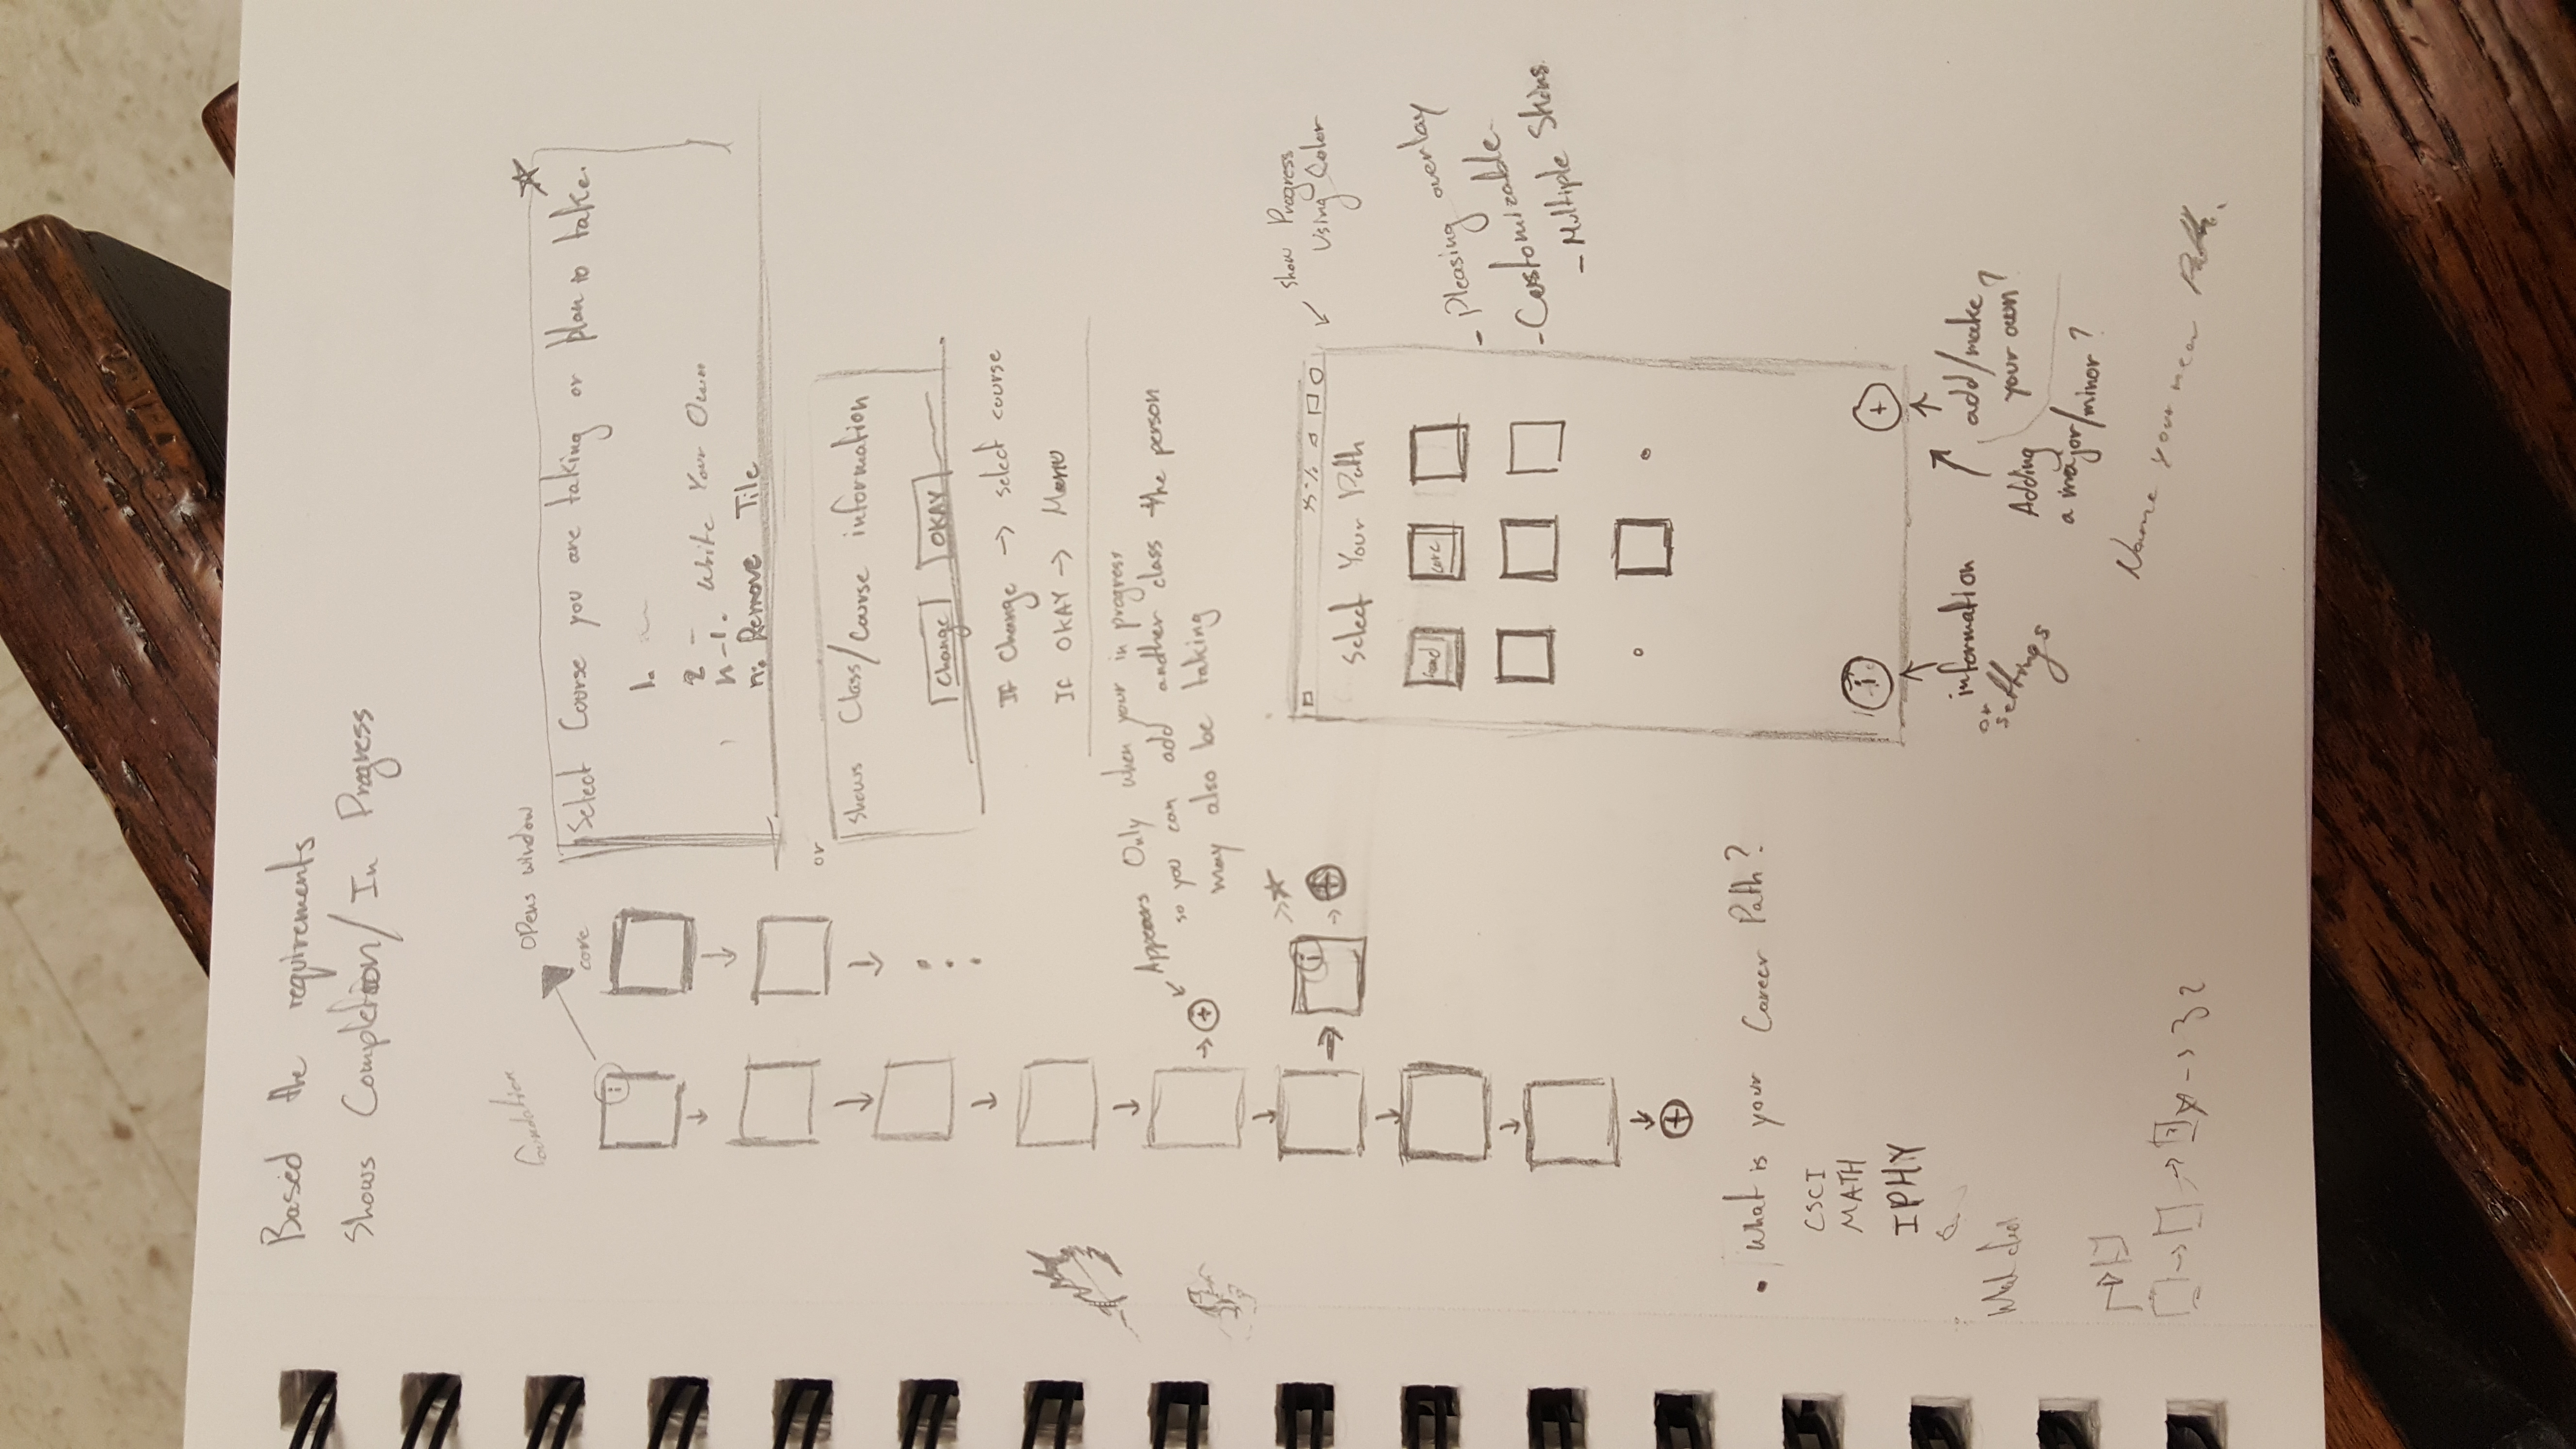 Based the requirements
Shows Completion/In Progress
foundation
Opens window
core
i
Select Course you are taking or plan to take.
1.
2 -
n-1. Write Your Own
n: Remove Tile
or
Shows Class/Course information
Change OKAY
If Change → select course
If OKAY → Menu
Appears Only when your in progress
so you can add another class the person
may also be taking
+
i
+
Show Progress
Using Color
Select Your Path
found core
- Pleasing overlay
- Customizable
- Multiple Skins
+
• What is your Career Path?
CSCI
MATH
IPHY
i +
information
or
settings
add/make
your own?
Adding
a major/minor?
Name your new Path.